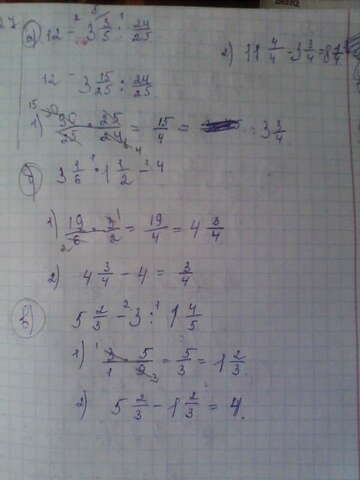 а) 12 - 3 3/5 : 24/25
2) 11 4/4 - 3 3/4 = 8 1/4
12 - 3 15/25 : 24/25
1) 90/25 · 25/24 = 15/4 = 3 3/4
б) 3 1/6 · 1 1/2 - 4
1) 19/6 · 3/2 = 19/4 = 4 3/4
2) 4 3/4 - 4 = 3/4
в) 5 2/3 - 3 : 1 4/5
1) 3/1 · 5/9 = 5/3 = 1 2/3
2) 5 2/3 - 1 2/3 = 4.